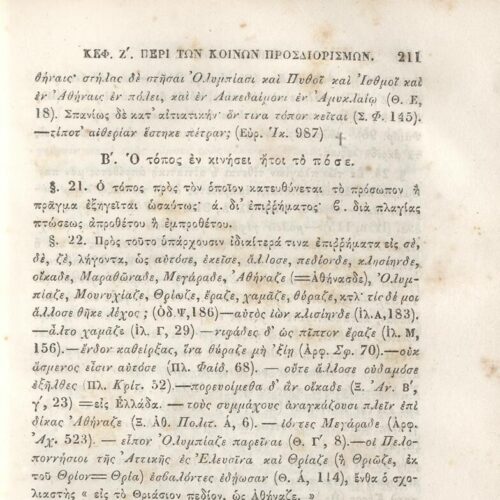 ΚΕΦ. Ζ΄. ΠΕΡΙ ΤΩΝ ΚΟΙΝΩΝ ΠΡΟΣΔΙΟΡΙΣΜΩΝ. 211
θήναις· στήλας δὲ στῆσαι Ὀλυμπίασι καὶ Πυθοῖ καὶ Ἰσθμοῖ καὶ
ἐν Ἀθήναις ἐν πόλει, καὶ ἐν Λακεδαίμονι ἐν Ἀμυκλαίῳ (Θ. Ε,
18). Σπανίως δὲ κατ᾽ αἰτιατικήν· ὅν τινα τόπον κεῖται (Σ. Φ. 145).
—τίποτ᾽ αἰθερίαν ἕστηκε πέτραν; (Εὐρ. Ἱκ. 987)
Β΄. Ὁ τόπος ἐν κινήσει ἤτοι τὸ πόσε.
§. 21. Ὁ τόπος πρὸς τὸν ὁποῖον κατευθύνεται τὸ πρόσωπον ἢ
πρᾶγμα ἐξηγεῖται ὡσαύτως· ά. δι᾽ ἐπιῤῥήματος· ϐ. διὰ πλαγίας
πτώσεως ἀπροθέτου ἢ ἐμπροθέτου.
§. 22. Πρὸς τοῦτο ὑπάρχουσιν ἰδιαίτερά τινα ἐπιῤῥήματα εἰς σὲ,
δὲ, ζὲ, λήγοντα, ὡς αὐτόσε, ἐκεῖσε, ἄλλοσε, πεδίονδε, κλισίηνδε,
οἴκαδε, Μαραθῶναδε, Μεγάραδε, Ἀθήναζε (=Ἀθήνασδε), Ὀλυμ-
πίαζε, Μουνυχίαζε, Θρίωζε, ἔραζε, χαμᾶζε, θύραζε, κτλ· τίς δέ μοι
ἄλλοσε θῆκε λέχος; (Ὀδ.Ψ,186)—αὐτὸς ἰὼν κλισίηνδε (ἰλ.Α,183).
—ἆλτο χαμᾶζε (ἰλ. Γ, 29).—νιφάδες δ᾽ ὡς πῖπτον ἔραζε (ἰλ. Μ,
156).—ἔνδον καθεῖρξας, ἵνα θύραζε μὴ ᾽ξίῃ (Ἀρφ. Σφ. 70).—οὐκ
ἄσμενος εἶσιν αὐτόσε (Πλ. Φαίδ. 68). — οὔτε ἄλλοσε οὐδαμόσε
ἐξῆλθες (Πλ. Κρίτ. 52).—πορευοίμεθα δ᾽ ἂν οἴκαδε (Ξ. Ἀν. Β΄,
γ΄, 23) =εἰς Ἑλλάδα. —τοὺς συμμάχους ἀναγκάζουσι πλεῖν ἐπὶ
δίκας Ἀθήναζε (Ξ. Ἀθ. Πολιτ. Α, 6). — ἰόντες Μεγάραδε (Ἀρφ.
Ἀχ. 523). — εἶπον Ὀλυμπίαζε παρεῖναι (Θ. Γ΄, 8).—οἱ Πελο-
ποννήσιοι τῆς Ἀττικῆς ἐς Ἐλευσῖνα καὶ Θρίαζε (ἢ Θριῶζε, ἐκ
τοῦ Θρίον=Θρία) ἐσβαλόντες ἐδῄωσαν (Θ. Α, 114), ἔνθα ὁ σχο-
λιαστὴς « εἰς τὸ Θριάσιον πεδίον, ὡς Ἀθήναζε. »